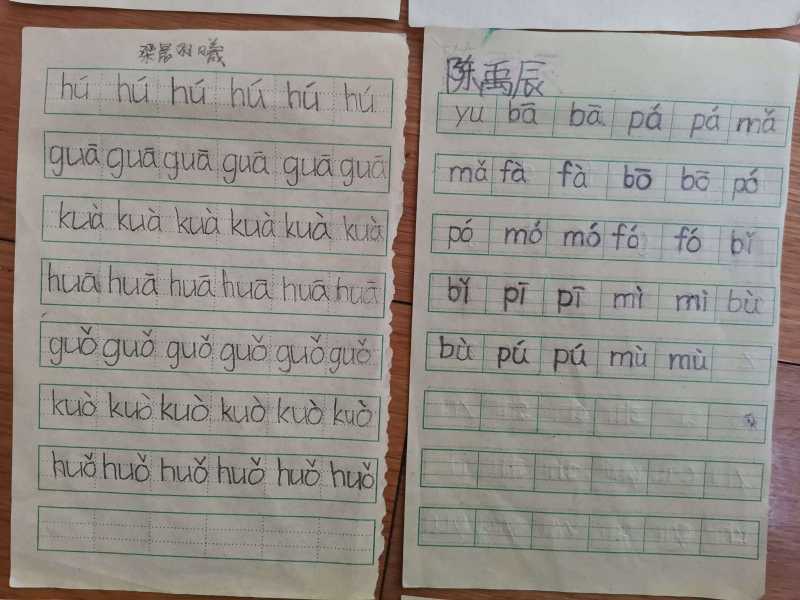 hú hú hú hú hú hú
guā guā guā guā guā guā
kuà kuà kuà kuà kuà kuà
huā huā huā huā huā huā
guǒ guǒ guǒ guǒ guǒ guǒ
kuò kuò kuò kuò kuò kuò
huǒ huǒ huǒ huǒ huǒ huǒ
陈禹辰
yu bā bā pá pá mǎ
mǎ fà fà bō bō pó
pó mó mó fó fó bǐ
bǐ pī pī mì mì bù
bù pú pú mù mù